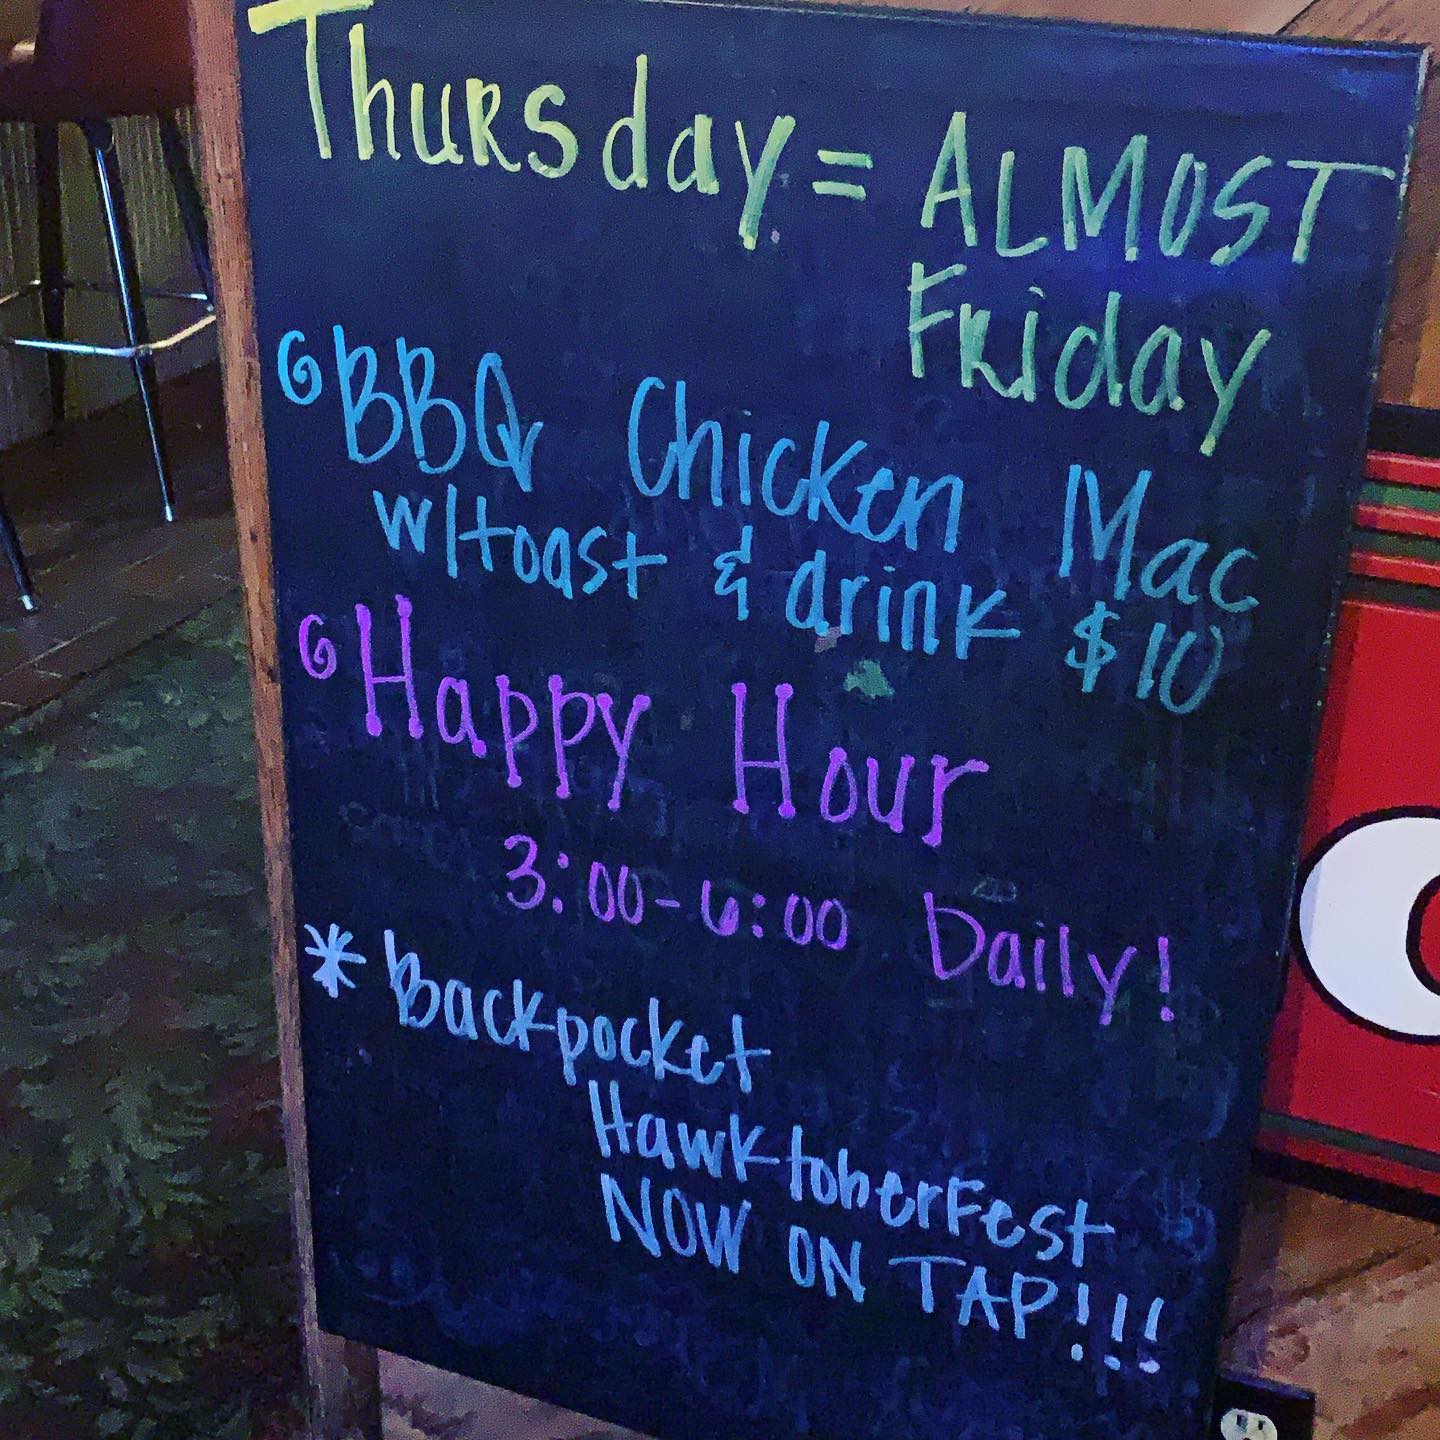 Thursday = ALMOST
Friday
BBQ Chicken Mac
w/toast & drink $10
Happy Hour
3:00-6:00 Daily!
* Backpocket
HawktoberFest
NOW ON TAP!!!